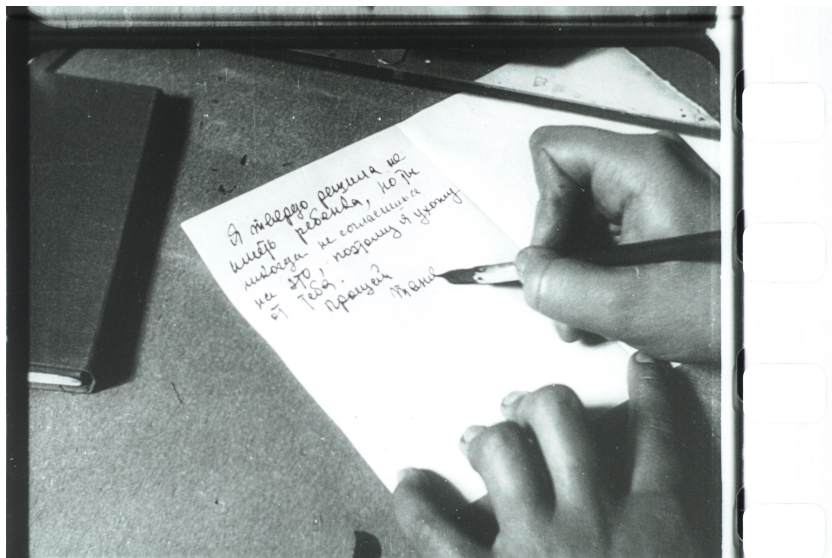 Я твердо решила не
иметь ребенка, но ты
никогда не согласишься
на это, поэтому я ухожу
от тебя.
Прощай
Таня